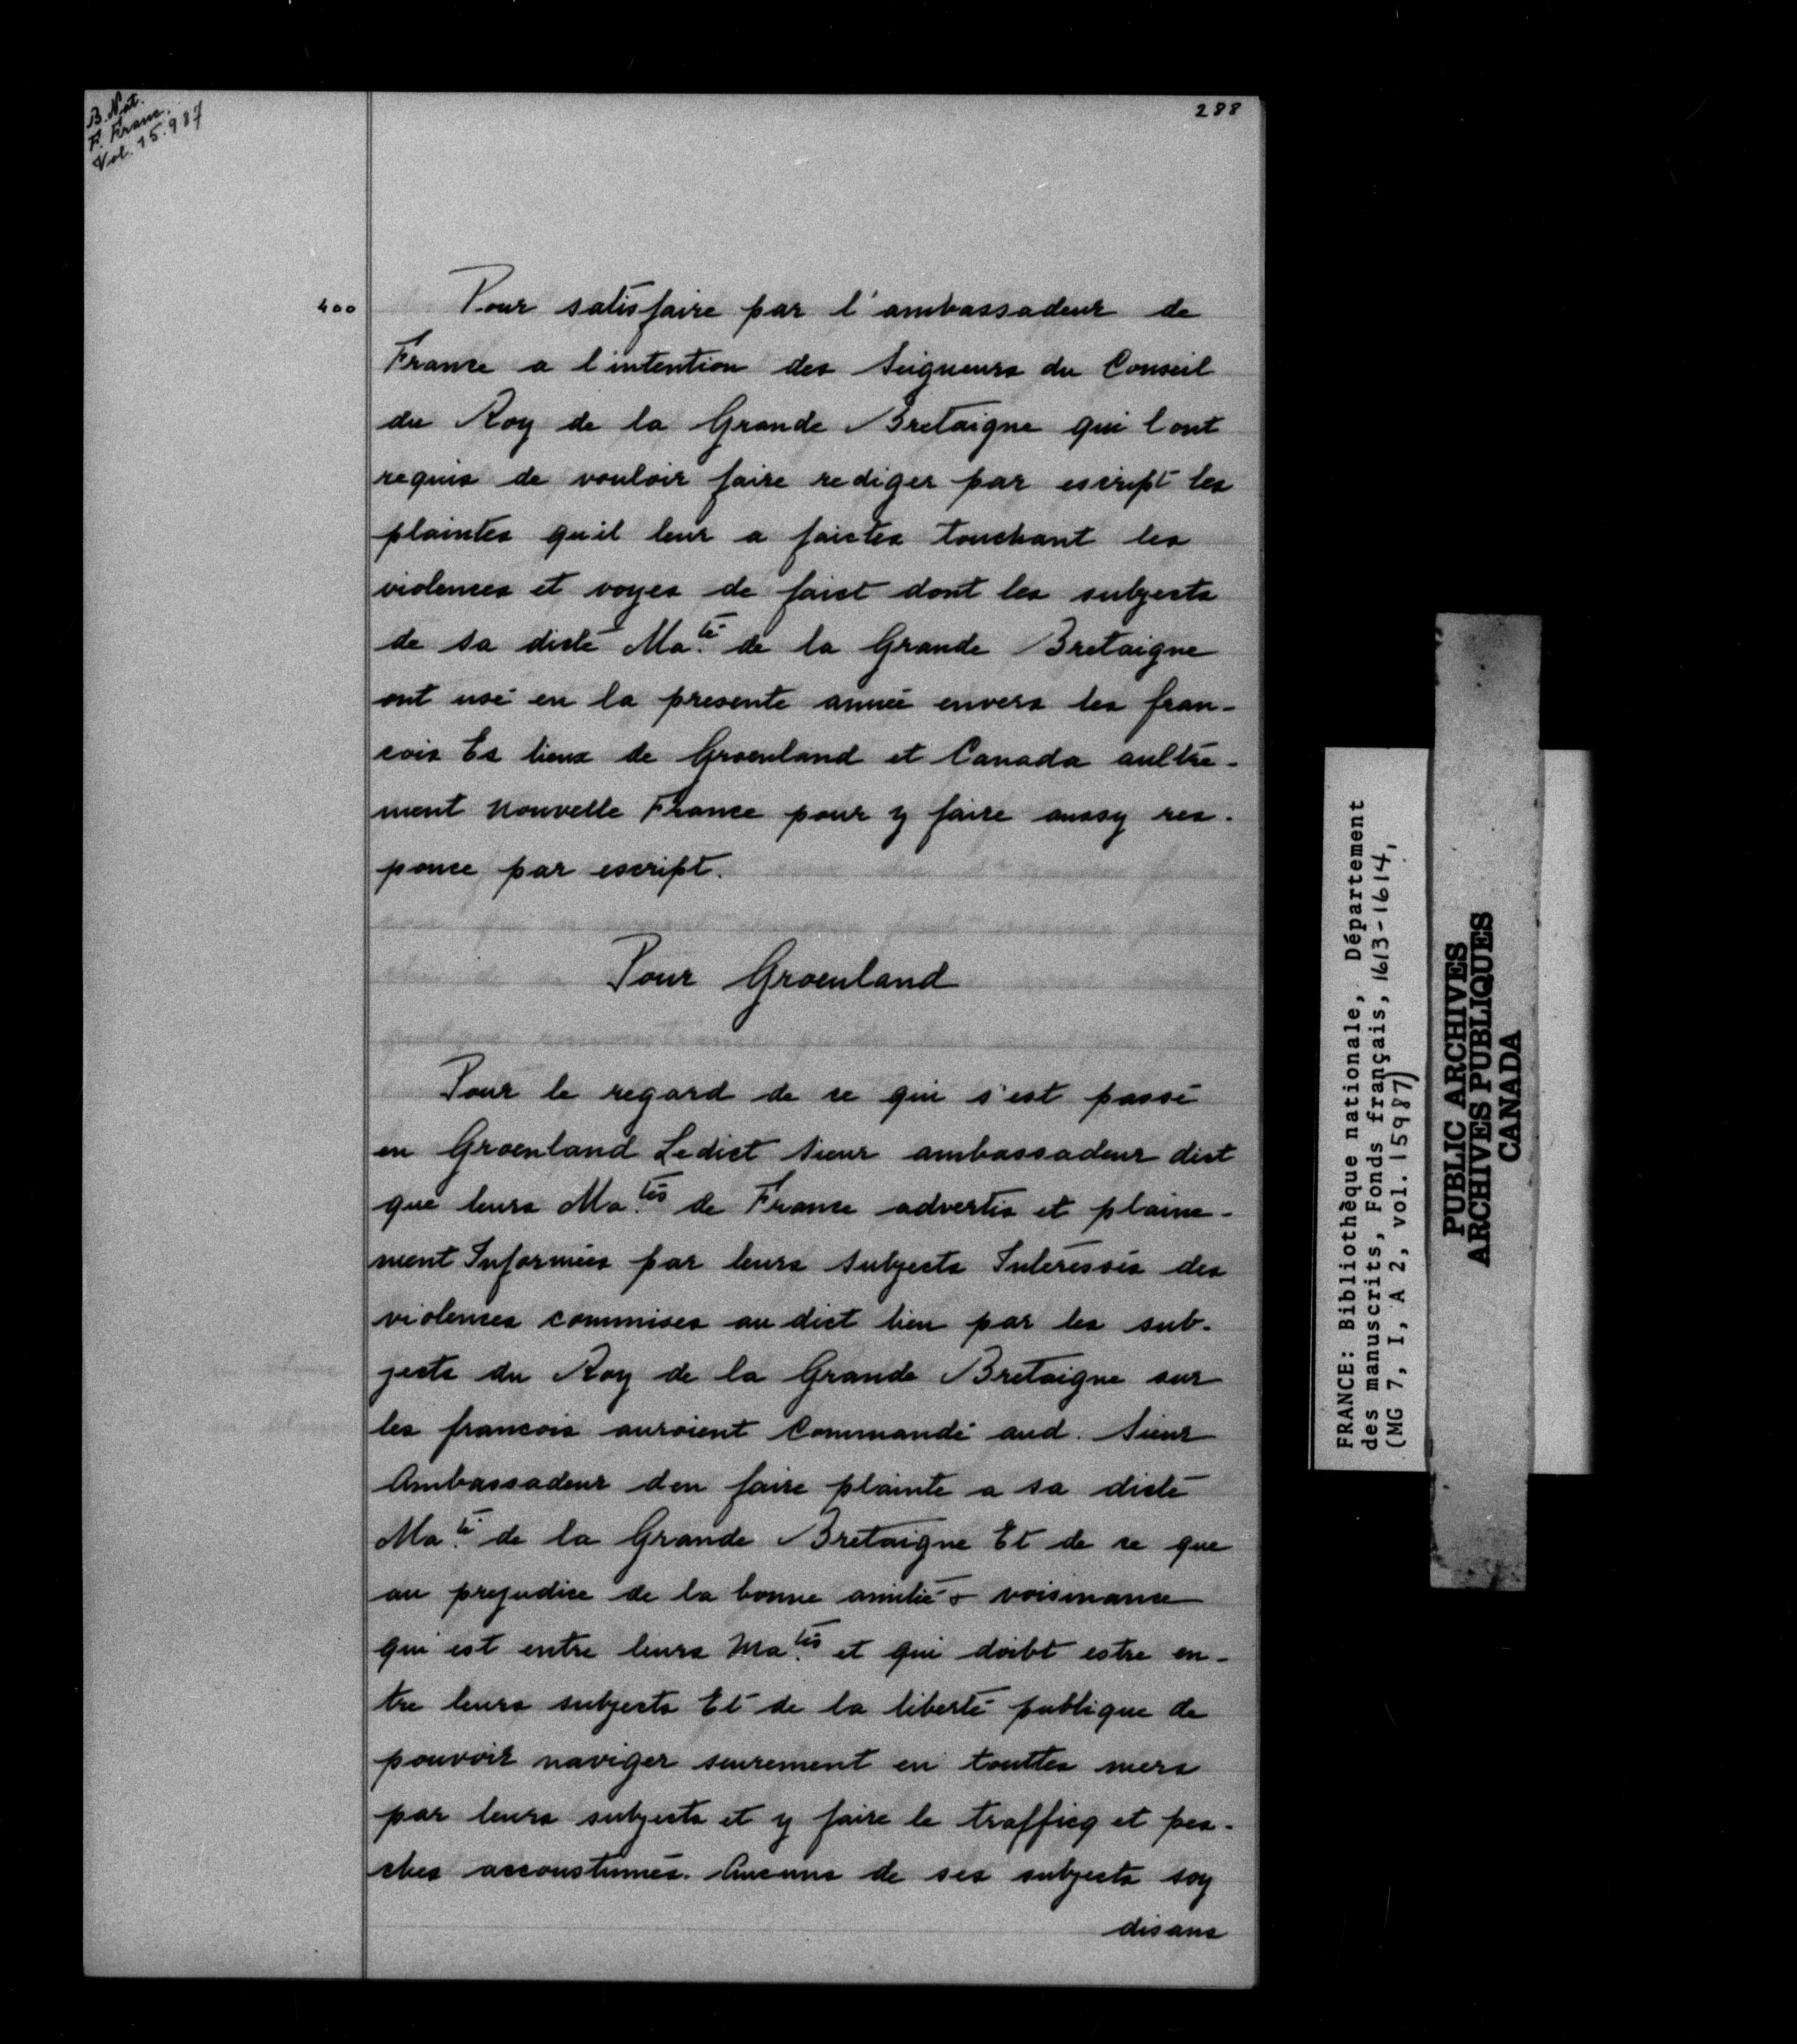 B. Nat.
F. Franc.
Vol. 15.987
288
400
Pour satisfaire par l'ambassadeur de
France a l'intention des Seigneurs du Conseil
du Roy de la Grande Bretaigne qui l'ont
requis de vouloir faire rediger par escript les
plaintes qu'il leur a faictes touchant les
violences et voyes de faict dont les subjects
de sa dicte Ma.té de la Grande Bretaigne
ont usé en la presente année envers les fran-
cois Es lieux de Groenland et Canada aultre-
ment nouvelle France pour y faire aussy res-
ponce par escript.
Pour Groenland
Pour le regard de ce qui s'est passé
en Groenland Ledict Sieur ambassadeur dict
que leurs Ma.tés de France advertis et plaine-
ment Informées par leurs subjects Interessés des
violences commises au dict lieu par les sub-
jects du Roy de la Grande Bretaigne sur
les francois auroient Commandé aud. Sieur
Ambassadeur d'en faire plainte a sa dicte
Ma.té de la Grande Bretaigne Et de ce que
au prejudice de la bonne amitié & voisinance
qui est entre leurs Ma.tés et qui doibt estre en-
tre leurs subjects Et de la liberté publique de
pouvoir naviger seurement en touttes mers
par leurs subjects et y faire le trafficq et pes-
ches accoustumés. Aucuns de ses subjects soy
disans
FRANCE: Bibliothèque nationale, Département
des manuscrits, Fonds français, 1613-1614,
(MG 7, I, A 2, vol. 15987)
PUBLIC ARCHIVES
ARCHIVES PUBLIQUES
CANADA